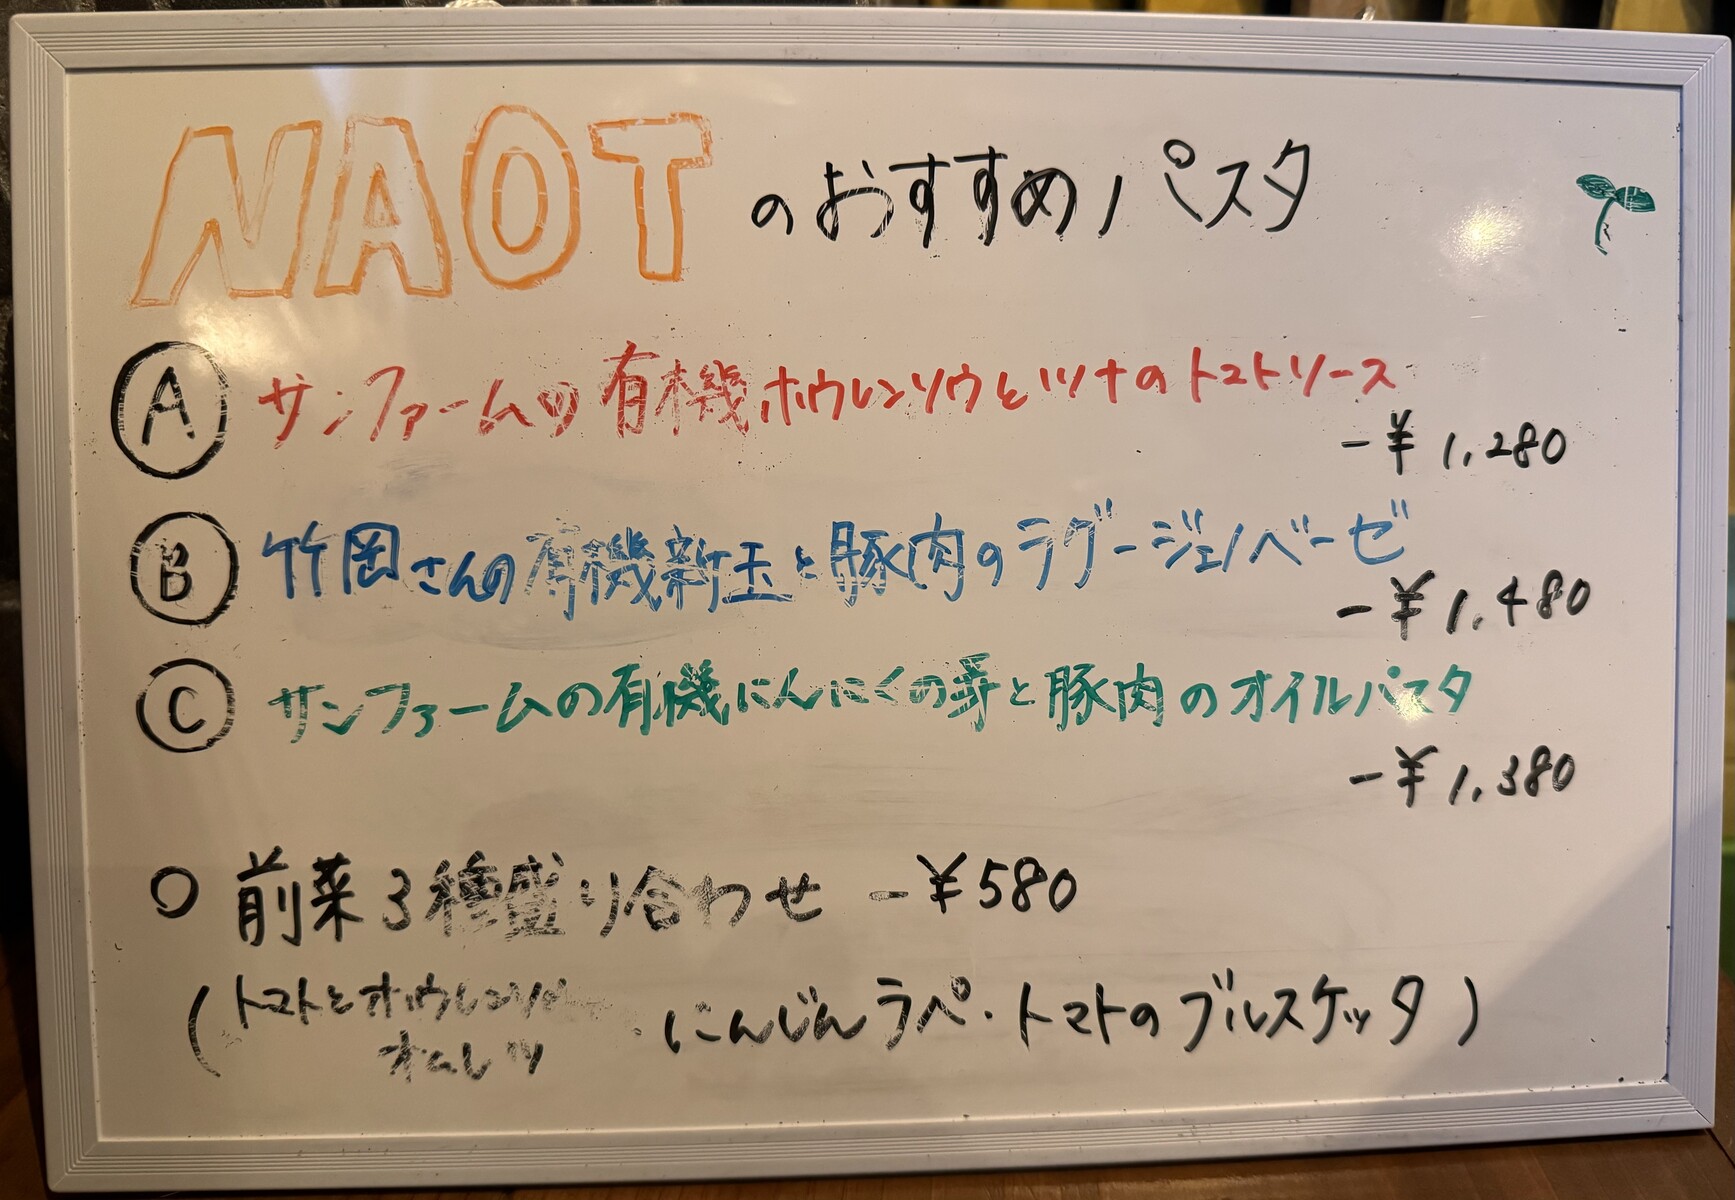 NAOTのおすすめパスタ
A サンファームの有機ホウレンソウとツナのトマトソース
-¥1,280
B 竹岡さんの有機新玉と豚肉のラグージェノベーゼ
-¥1,480
C サンファームの有機にんにくの芽と豚肉のオイルパスタ
-¥1,380
○ 前菜3種盛り合わせ -¥580
(トマトとホウレンソウの
オムレツ
・にんじんラペ・トマトのブルスケッタ)